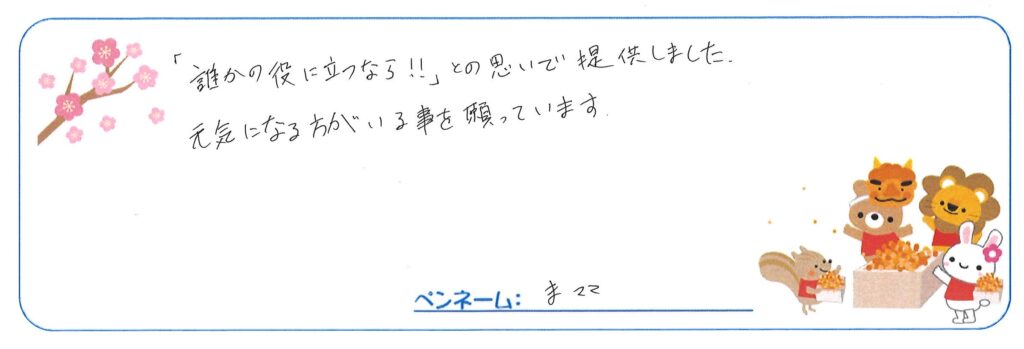 「誰かの役に立つなら!!」との思いで提供しました.
元気になる方がいる事を願っています.
ペンネーム: まママ